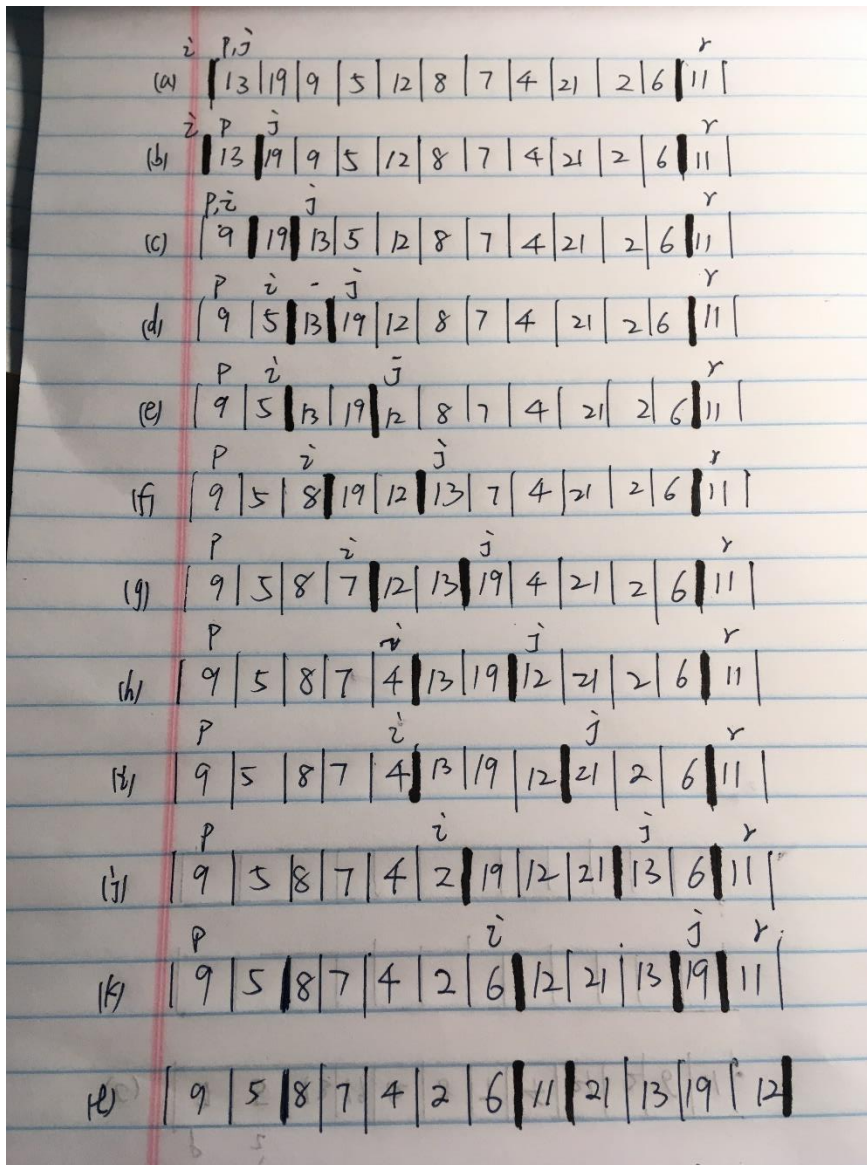 i p,j r
(a) | 13 | 19 | 9 | 5 | 12 | 8 | 7 | 4 | 21 | 2 | 6 | 11 |
i p j r
(b) | 13 | 19 | 9 | 5 | 12 | 8 | 7 | 4 | 21 | 2 | 6 | 11 |
p,i j r
(c) | 9 | 19 | 13 | 5 | 12 | 8 | 7 | 4 | 21 | 2 | 6 | 11 |
p i - j r
(d) | 9 | 5 | 13 | 19 | 12 | 8 | 7 | 4 | 21 | 2 | 6 | 11 |
p i j r
(e) | 9 | 5 | 13 | 19 | 12 | 8 | 7 | 4 | 21 | 2 | 6 | 11 |
p i j r
(f) | 9 | 5 | 8 | 19 | 12 | 13 | 7 | 4 | 21 | 2 | 6 | 11 |
p i j r
(g) | 9 | 5 | 8 | 7 | 12 | 13 | 19 | 4 | 21 | 2 | 6 | 11 |
p i j r
(h) | 9 | 5 | 8 | 7 | 4 | 13 | 19 | 12 | 21 | 2 | 6 | 11 |
p i j r
(i) | 9 | 5 | 8 | 7 | 4 | 13 | 19 | 12 | 21 | 2 | 6 | 11 |
p i j r
(j) | 9 | 5 | 8 | 7 | 4 | 2 | 19 | 12 | 21 | 13 | 6 | 11 |
p i j r
(k) | 9 | 5 | 8 | 7 | 4 | 2 | 6 | 12 | 21 | 13 | 19 | 11 |
(l) | 9 | 5 | 8 | 7 | 4 | 2 | 6 | 11 | 21 | 13 | 19 | 12 |